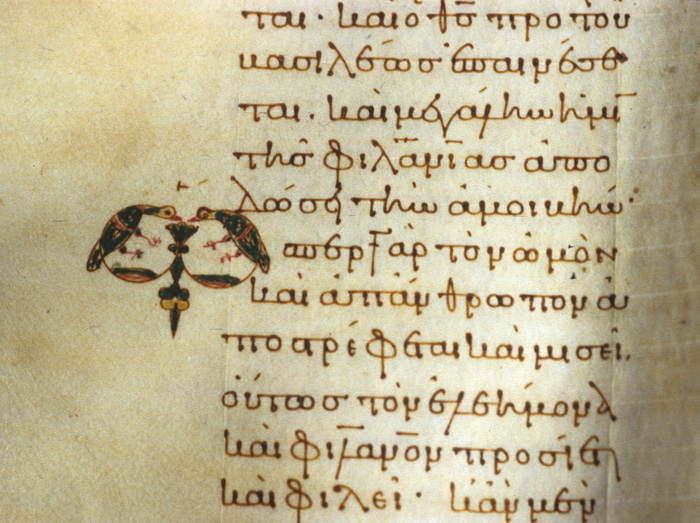 ται· καὶ ὁ θς̅ πρὸ τοῦ
βασιλέως ἐπαινέσε
ται. καὶ μεγάλην ἡμῖ
τῆς φιλα̅νίας ἀπο
δώσει τὴν ἀμοιβήν·
ὥσπερ γὰρ τὸν ὠμὸν
καὶ ἀπάνθρωπον ἀ
ποστρέφεται καὶ μισεῖ.
οὕτως τὸν ἐλεήμονα
καὶ φιλανο̅ν προσίε
καὶ φιλεῖ· κἂν μὲν